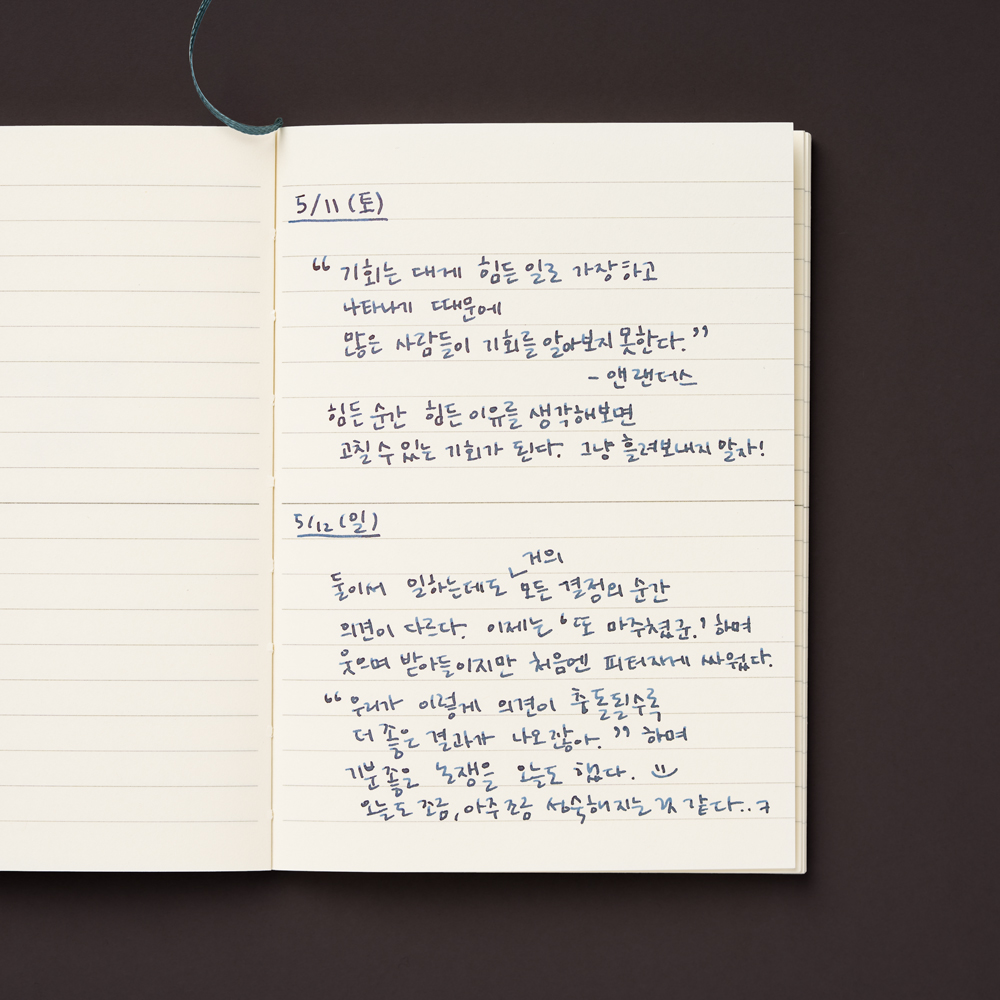 5/11 (토)
“ 기회는 대게 힘든 일로 가장하고
나타나기 때문에
많은 사람들이 기회를 알아보지 못한다.”
- 앤 랜더스
힘든 순간 힘든 이유를 생각해보면
고칠 수 있는 기회가 된다. 그냥 흘려보내지 말자!
5/12 (일)
거의
둘이서 일하는데도 모든 결정의 순간
의견이 다르다. 이제는 ‘또 마주쳤군.’ 하며
웃으며 받아들이지만 처음엔 피터지게 싸웠다.
“ 우리가 이렇게 의견이 충돌될수록
더 좋은 결과가 나오잖아. ” 하며
기분 좋은 논쟁을 오늘도 했다.
오늘도 조금, 아주 조금 성숙해지는 것 같다..ㅋ